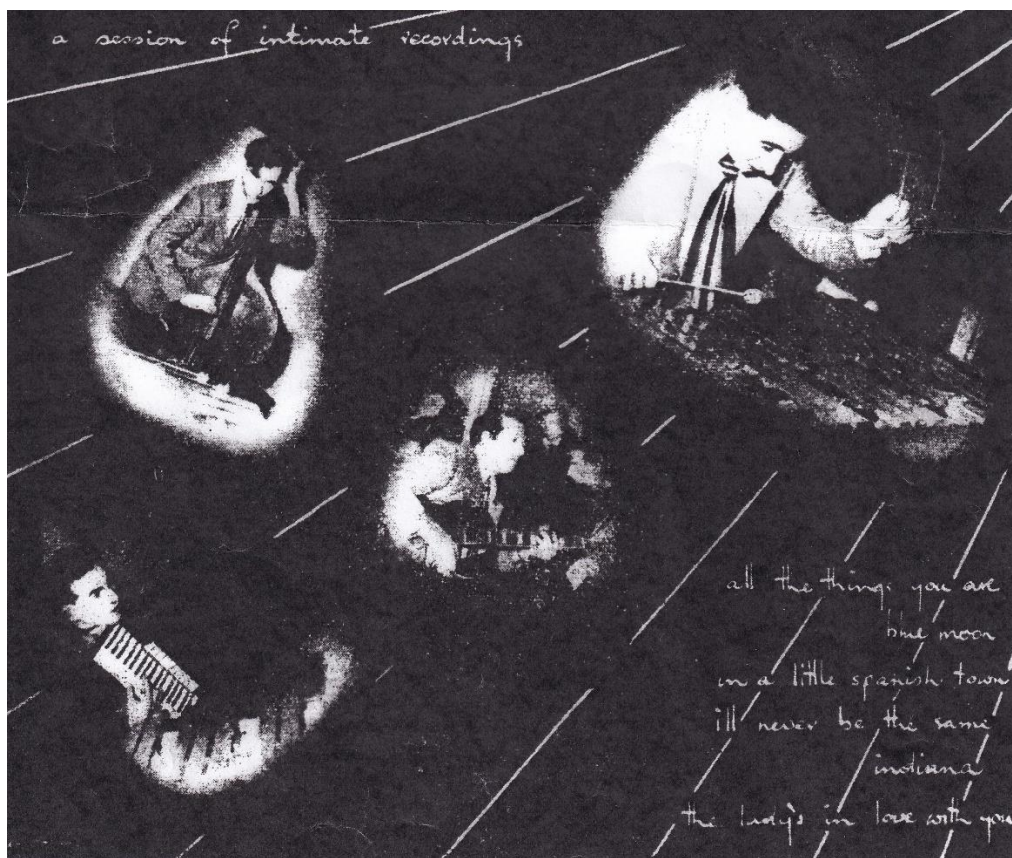 a session of intimate recordings
all the things you are
blue moon
in a little spanish town
ill never be the same
indiana
the lady's in love with you